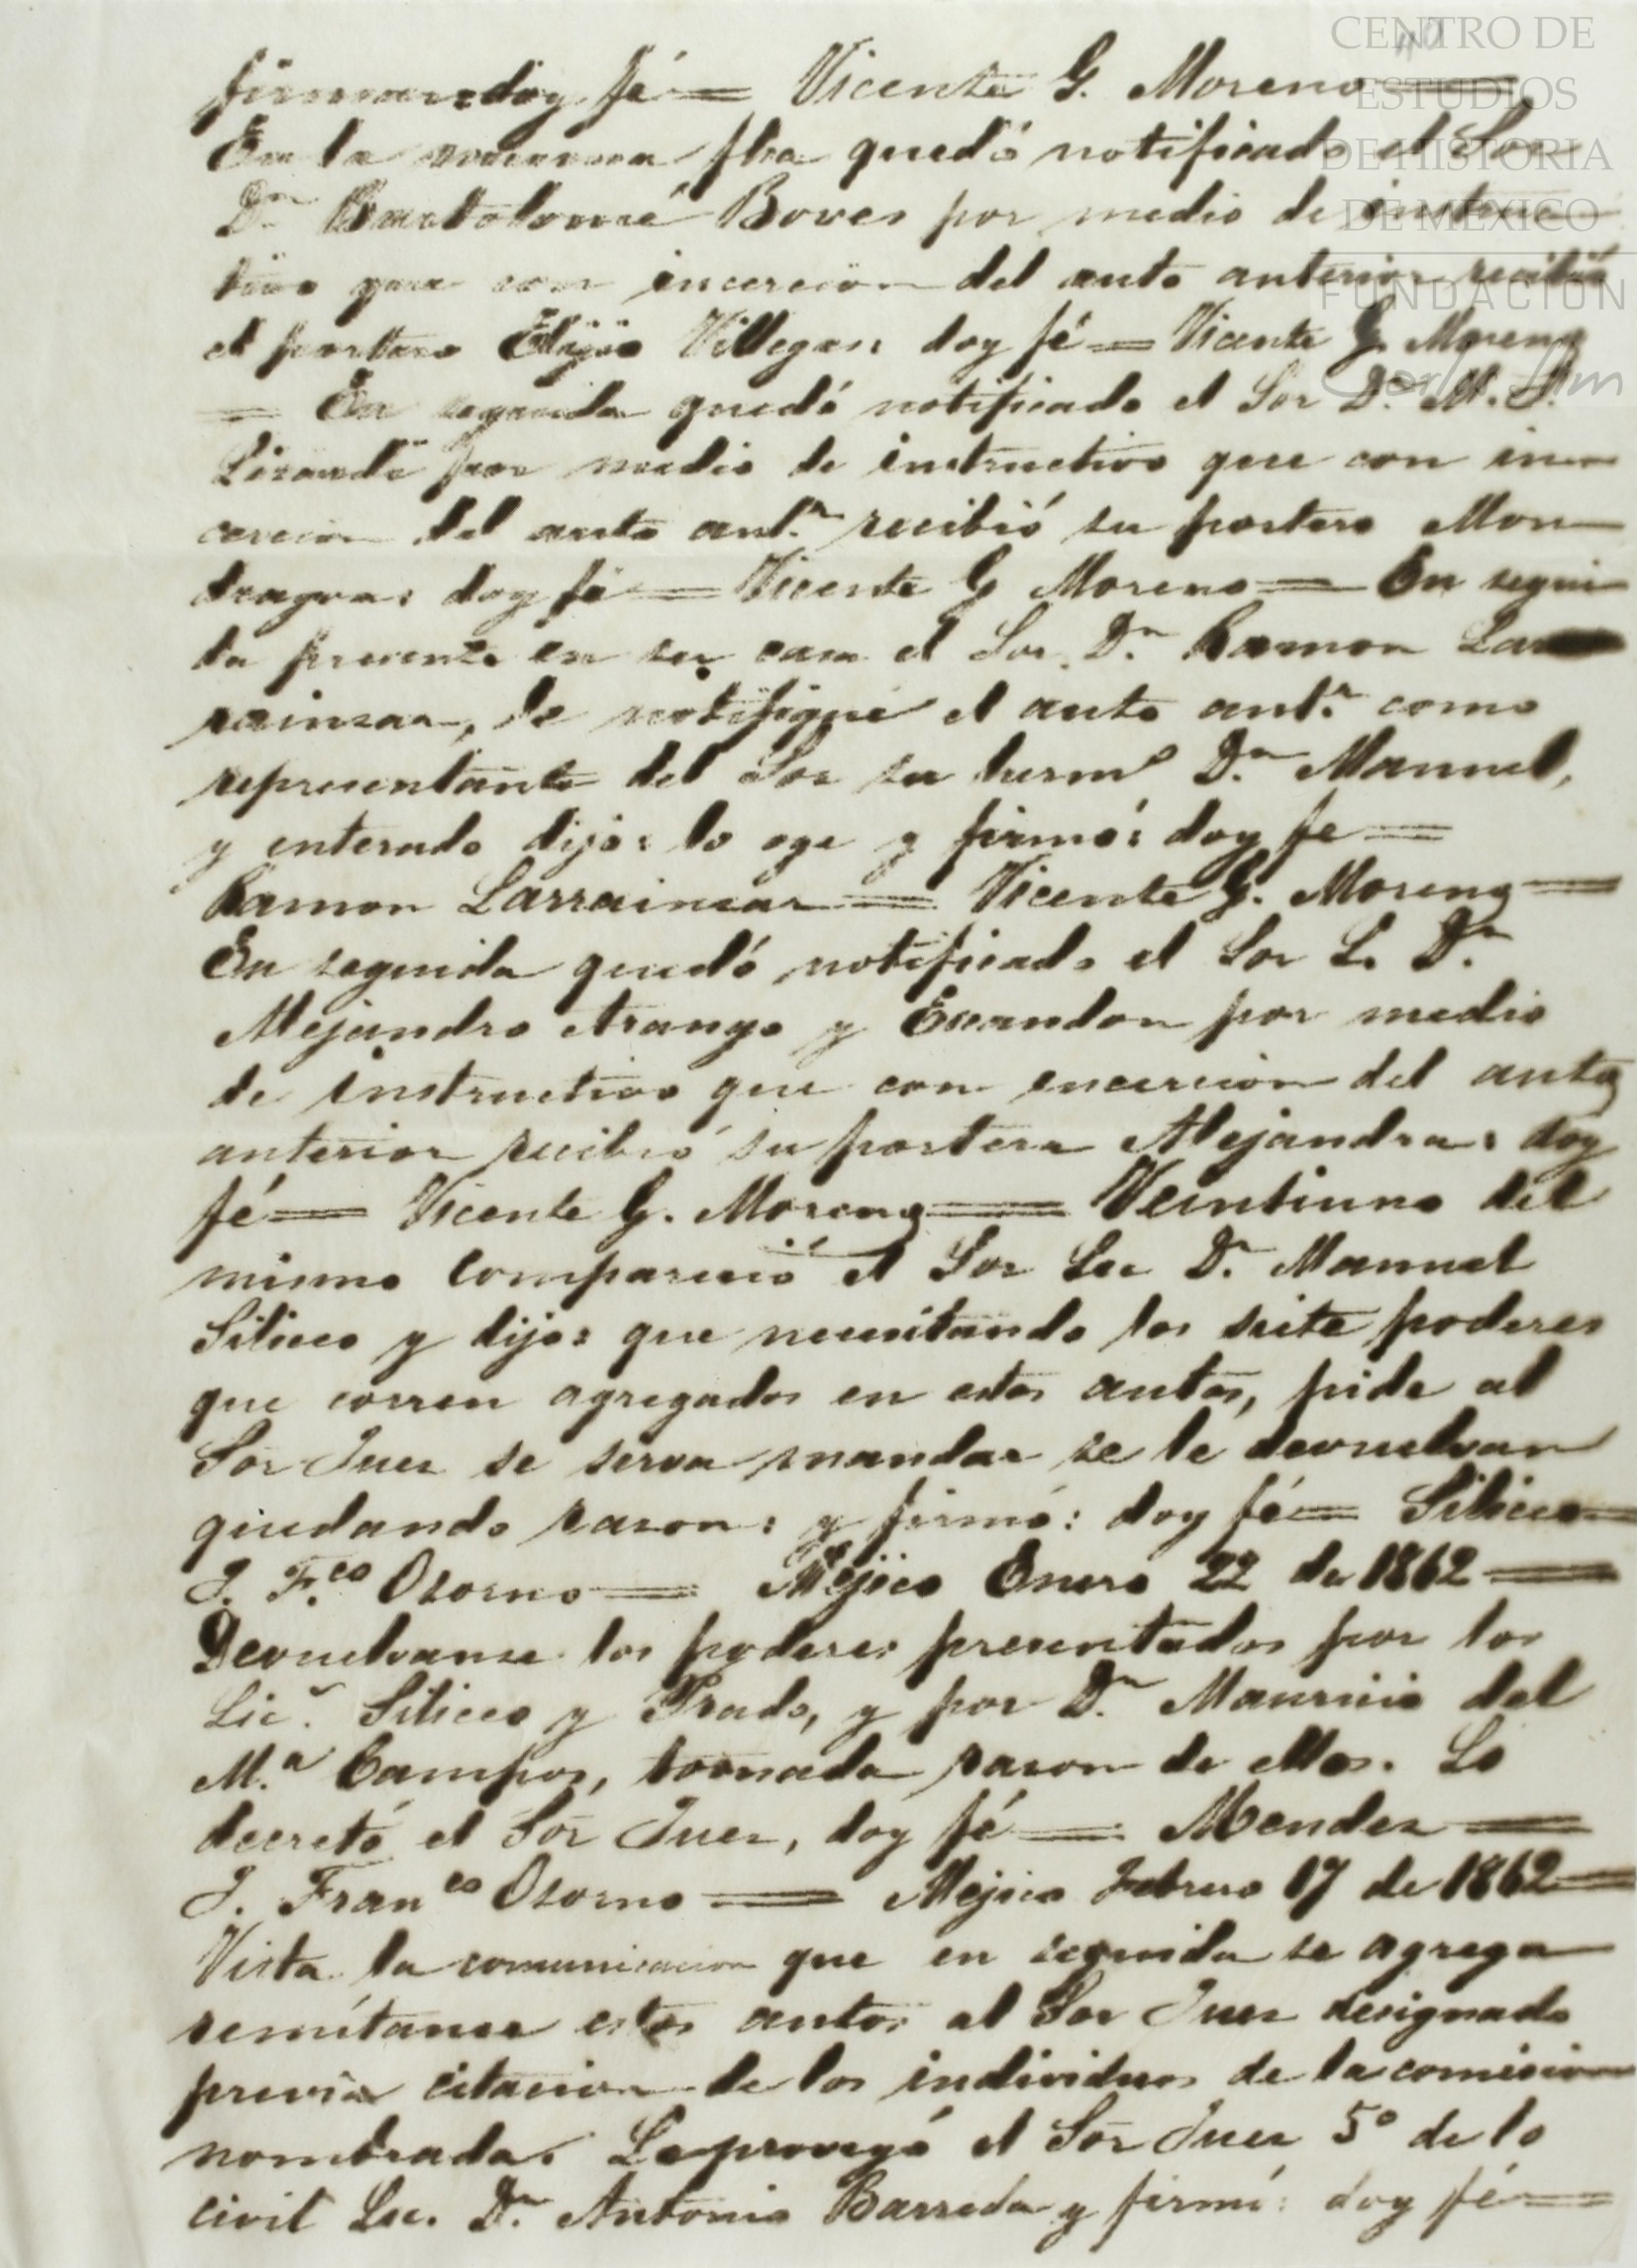 CENTRO DE
ESTUDIOS
DE HISTORIA
DE MÉXICO
FUNDACIÓN
firman: doy fé = Vicente G. Moreno =
En la misma fha quedó notificado el Sor
Dn Bartolomé Boves por medio de instruc-
tivo que con incercion del auto anterior recibió
el portero Eligio Villegas: doy fé = Vicente G. Moreno
= En seguida quedó notificado el Sor Dn M. J.
Lizardi por medio de instructivo que con in-
cercion del auto antr. recibió su portero Mon-
dragon: doy fé = Vicente G Moreno = En segui-
da presente en su casa el Sor. Dn Ramon Lar
rainzar, le notifiqué el auto antr. como
representante del Sor su hermo Dn Manuel,
y enterado dijo: lo oye y firmó: doy fe =
Ramon Larrainzar = Vicente G. Moreno =
En seguida quedó notificado el Sor L. Dn
Alejandro Arango y Escandon por medio
de instructivo que con incercion del auto
anterior recibió su portera Alejandra: doy
fé = Vicente G. Moreno = Veintiuno del
mismo compareció el Sor Lic Dn Manuel
Siliceo y dijo: que necesitando los siete poderes
que corren agregados en estos autos, pide al
Sor Juez se sirva mandar se le devuelvan
quedando razon: y firmó: doy fé = Siliceo =
J. Fco Osorno = Méjico Enero 22 de 1862 =
Devuelvanse los poderes presentados por los
Lics. Siliceo y Prado, y por Dn Mauricio del
M.a Campos, tomada razon de ellos. Lo
decretó el Sor Juez, doy fé = Mendez =
J. Franco Osorno = Mejico Febrero 17 de 1862 =
Vista la comunicacion que en seguida se agrega
remítanse estos autos al Sor Juez designado
previa citacion de los individuos de la comision
nombrada. Lo proveyó el Sor Juez 5º de lo
civil Lic. Dn Antonio Barreda y firmó: doy fé =